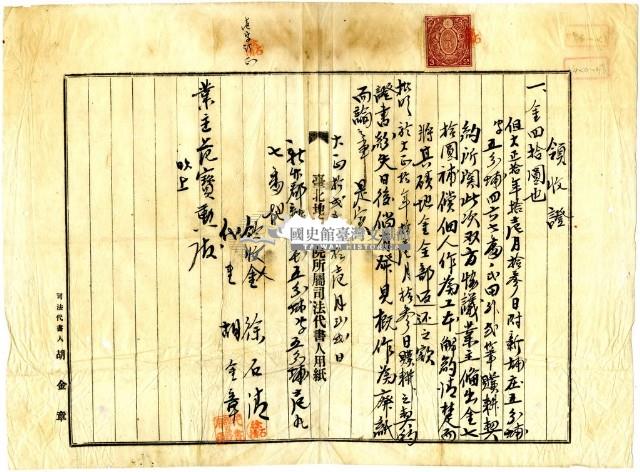 領收證
一、金四拾圓也
但大正拾年拾壱月拾参日附新埔庄五分埔
字五分埔四七六番ノ一田外弐筆贌耕契
約所關此次双方協議業主備出金七
拾圓補償佃人作為工本解約清楚而
將其磧地金全部返还之欵
批明於大正拾年拾壱月拾参日贌耕之契約
證書紛失日後倘有發見概作為廢紙
而論
大正拾弐年
月
日
臺北地
院所屬司法代書人用紙
新竹郡
五分埔字五分埔
七番地
領收人
徐石清
代書
胡金章
業主范寶勲殿
以上
司法代書人
胡金章
國史館臺灣文獻館
TAIWAN HISTORICA